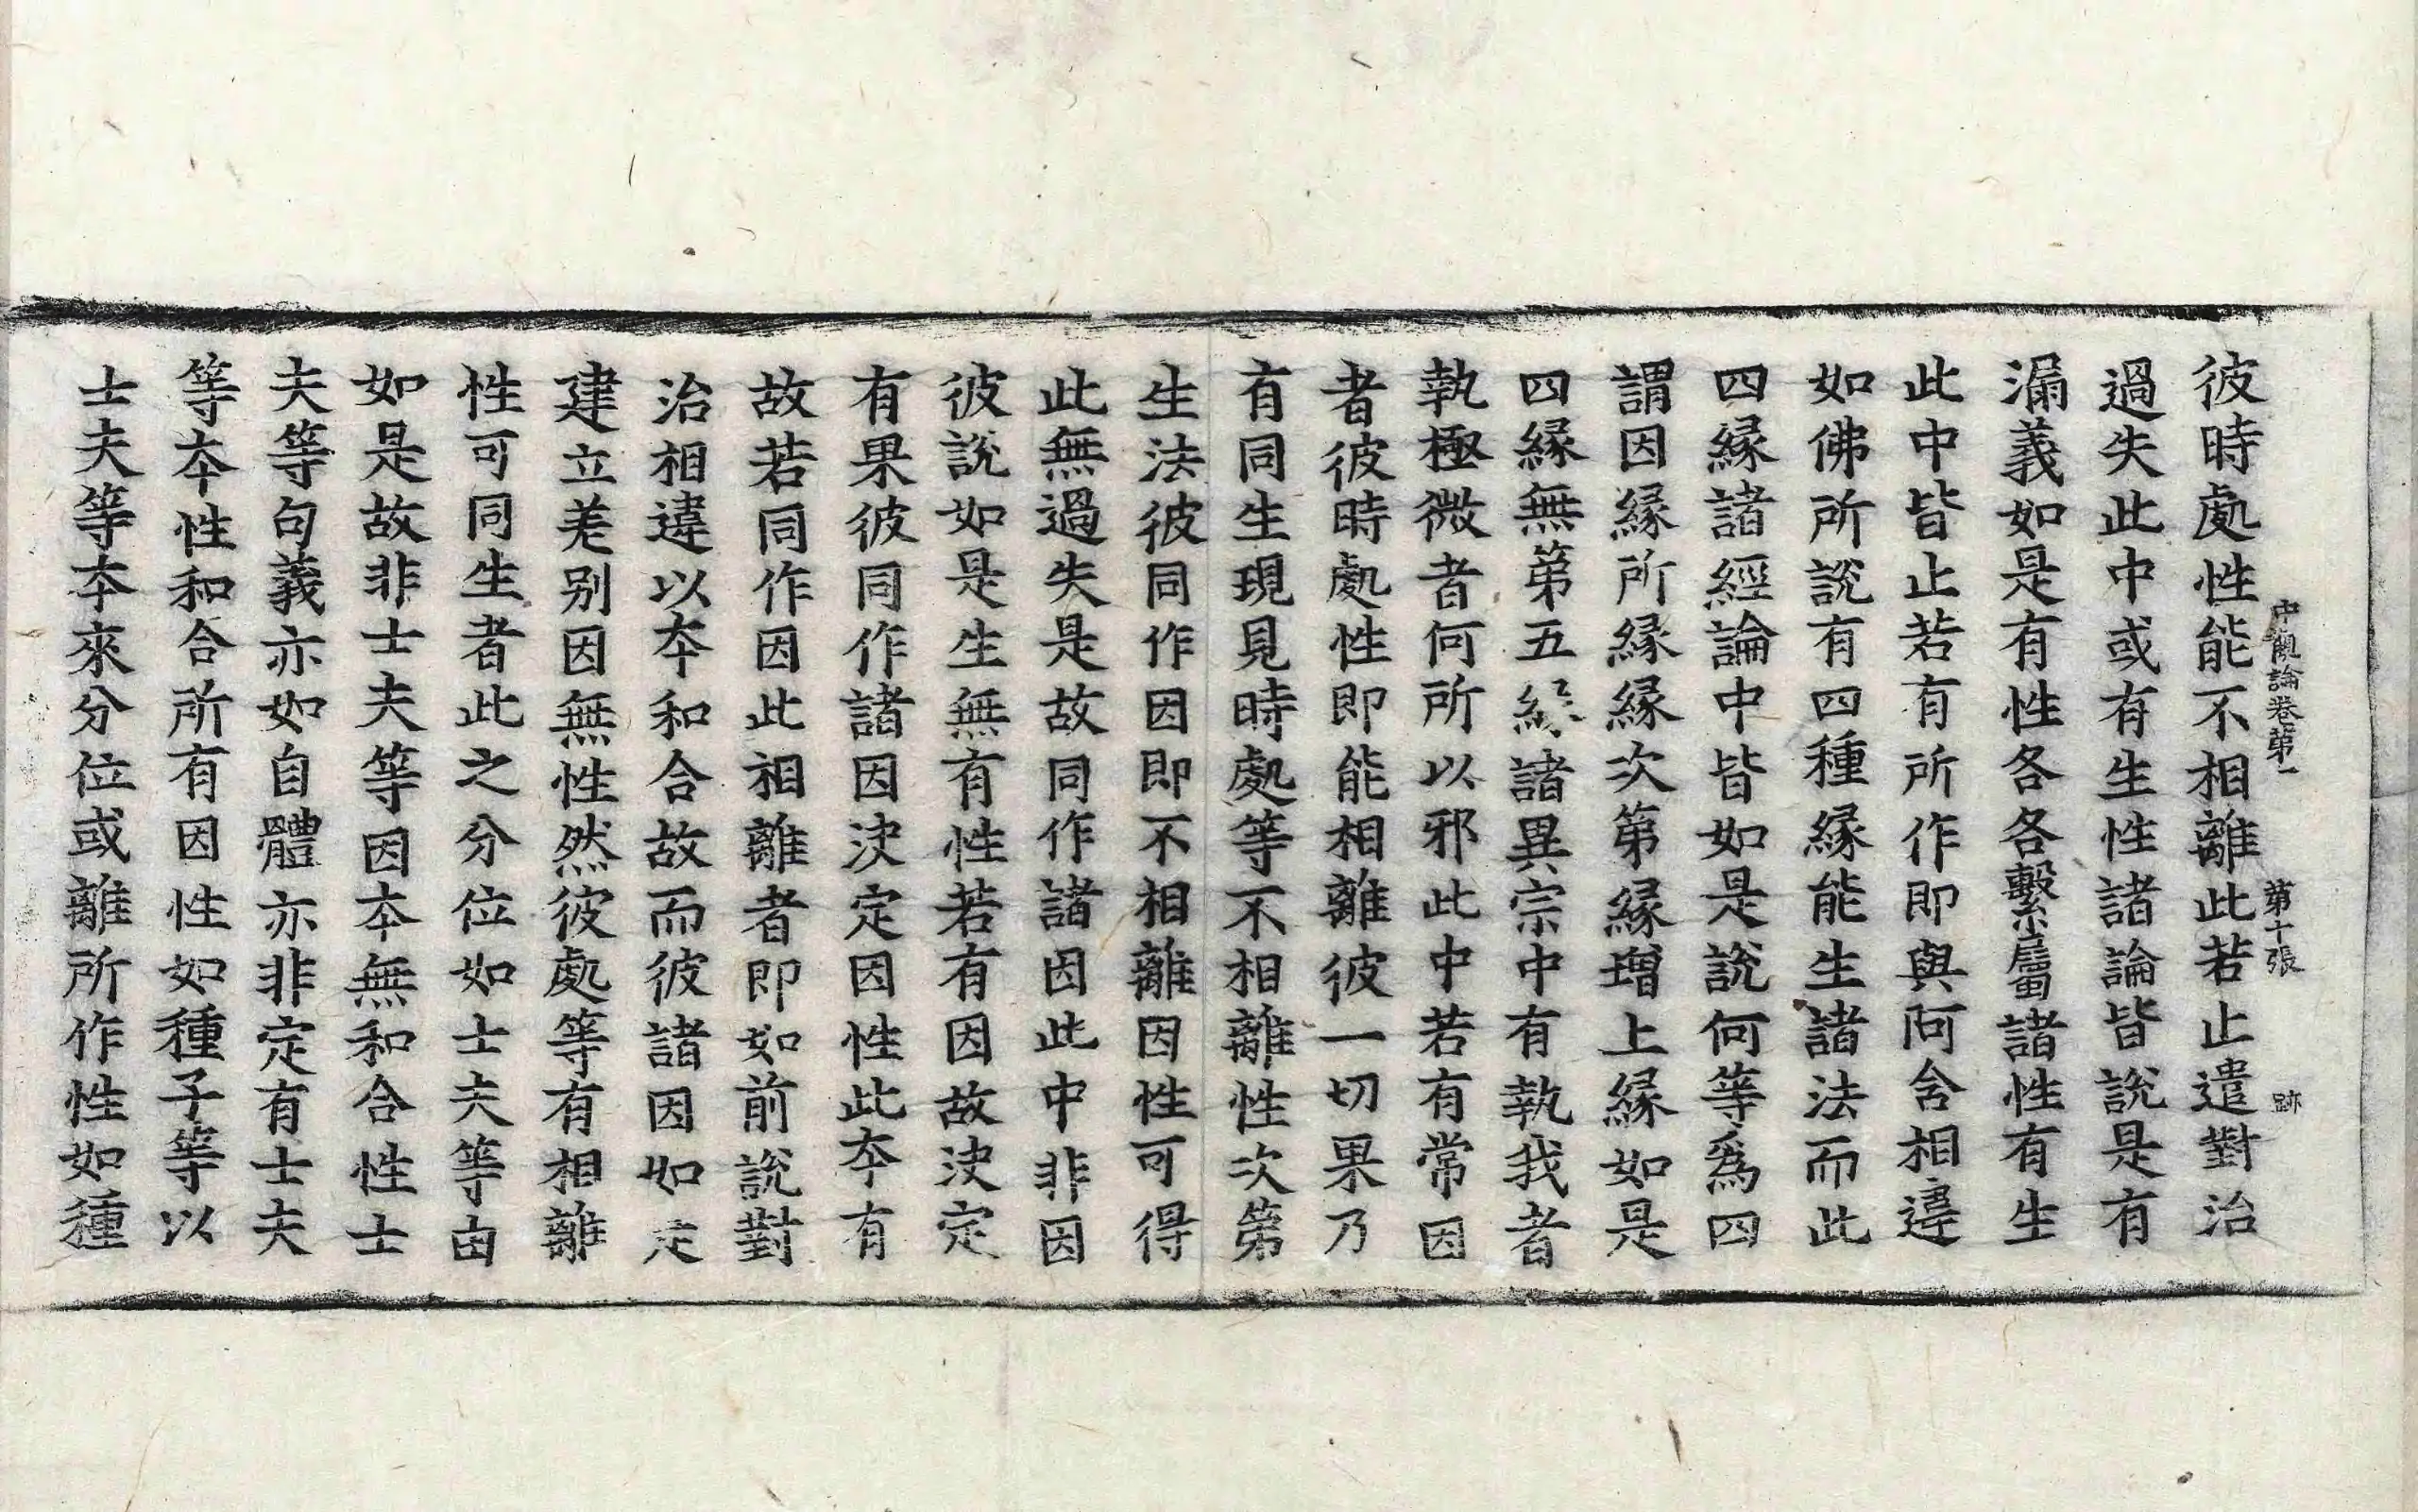 中觀論卷第一 第十張 跡
彼時處性能不相離此若止遣對治
過失此中或有生性諸論皆說是有
漏義如是有性各各繫屬諸性有生
此中皆止若有所作即與阿含相違
如佛所說有四種緣能生諸法而此
四緣諸經論中皆如是說何等爲四
謂因緣所緣緣次第緣增上緣如是
四緣無第五緣諸異宗中有執我者
執極微者何所以邪此中若有常因
者彼時處性即能相離彼一切果乃
有同生現見時處等不相離性次第
生法彼同作因即不相離因性可得
此無過失是故同作諸因此中非因
彼說如是生無有性若有因故决定
有果彼同作諸因决定因性此夲有
故若同作因此相離者即如前說對
治相違以夲和合故而彼諸因如是
建立差别因無性然彼處等有相離
性可同生者此之分位如士夫等由
如是故非士夫等因夲無和合性士
夫等句義亦如自體亦非定有士夫
等夲性和合所有因性如種子等以
士夫等夲來分位或離所作性如種